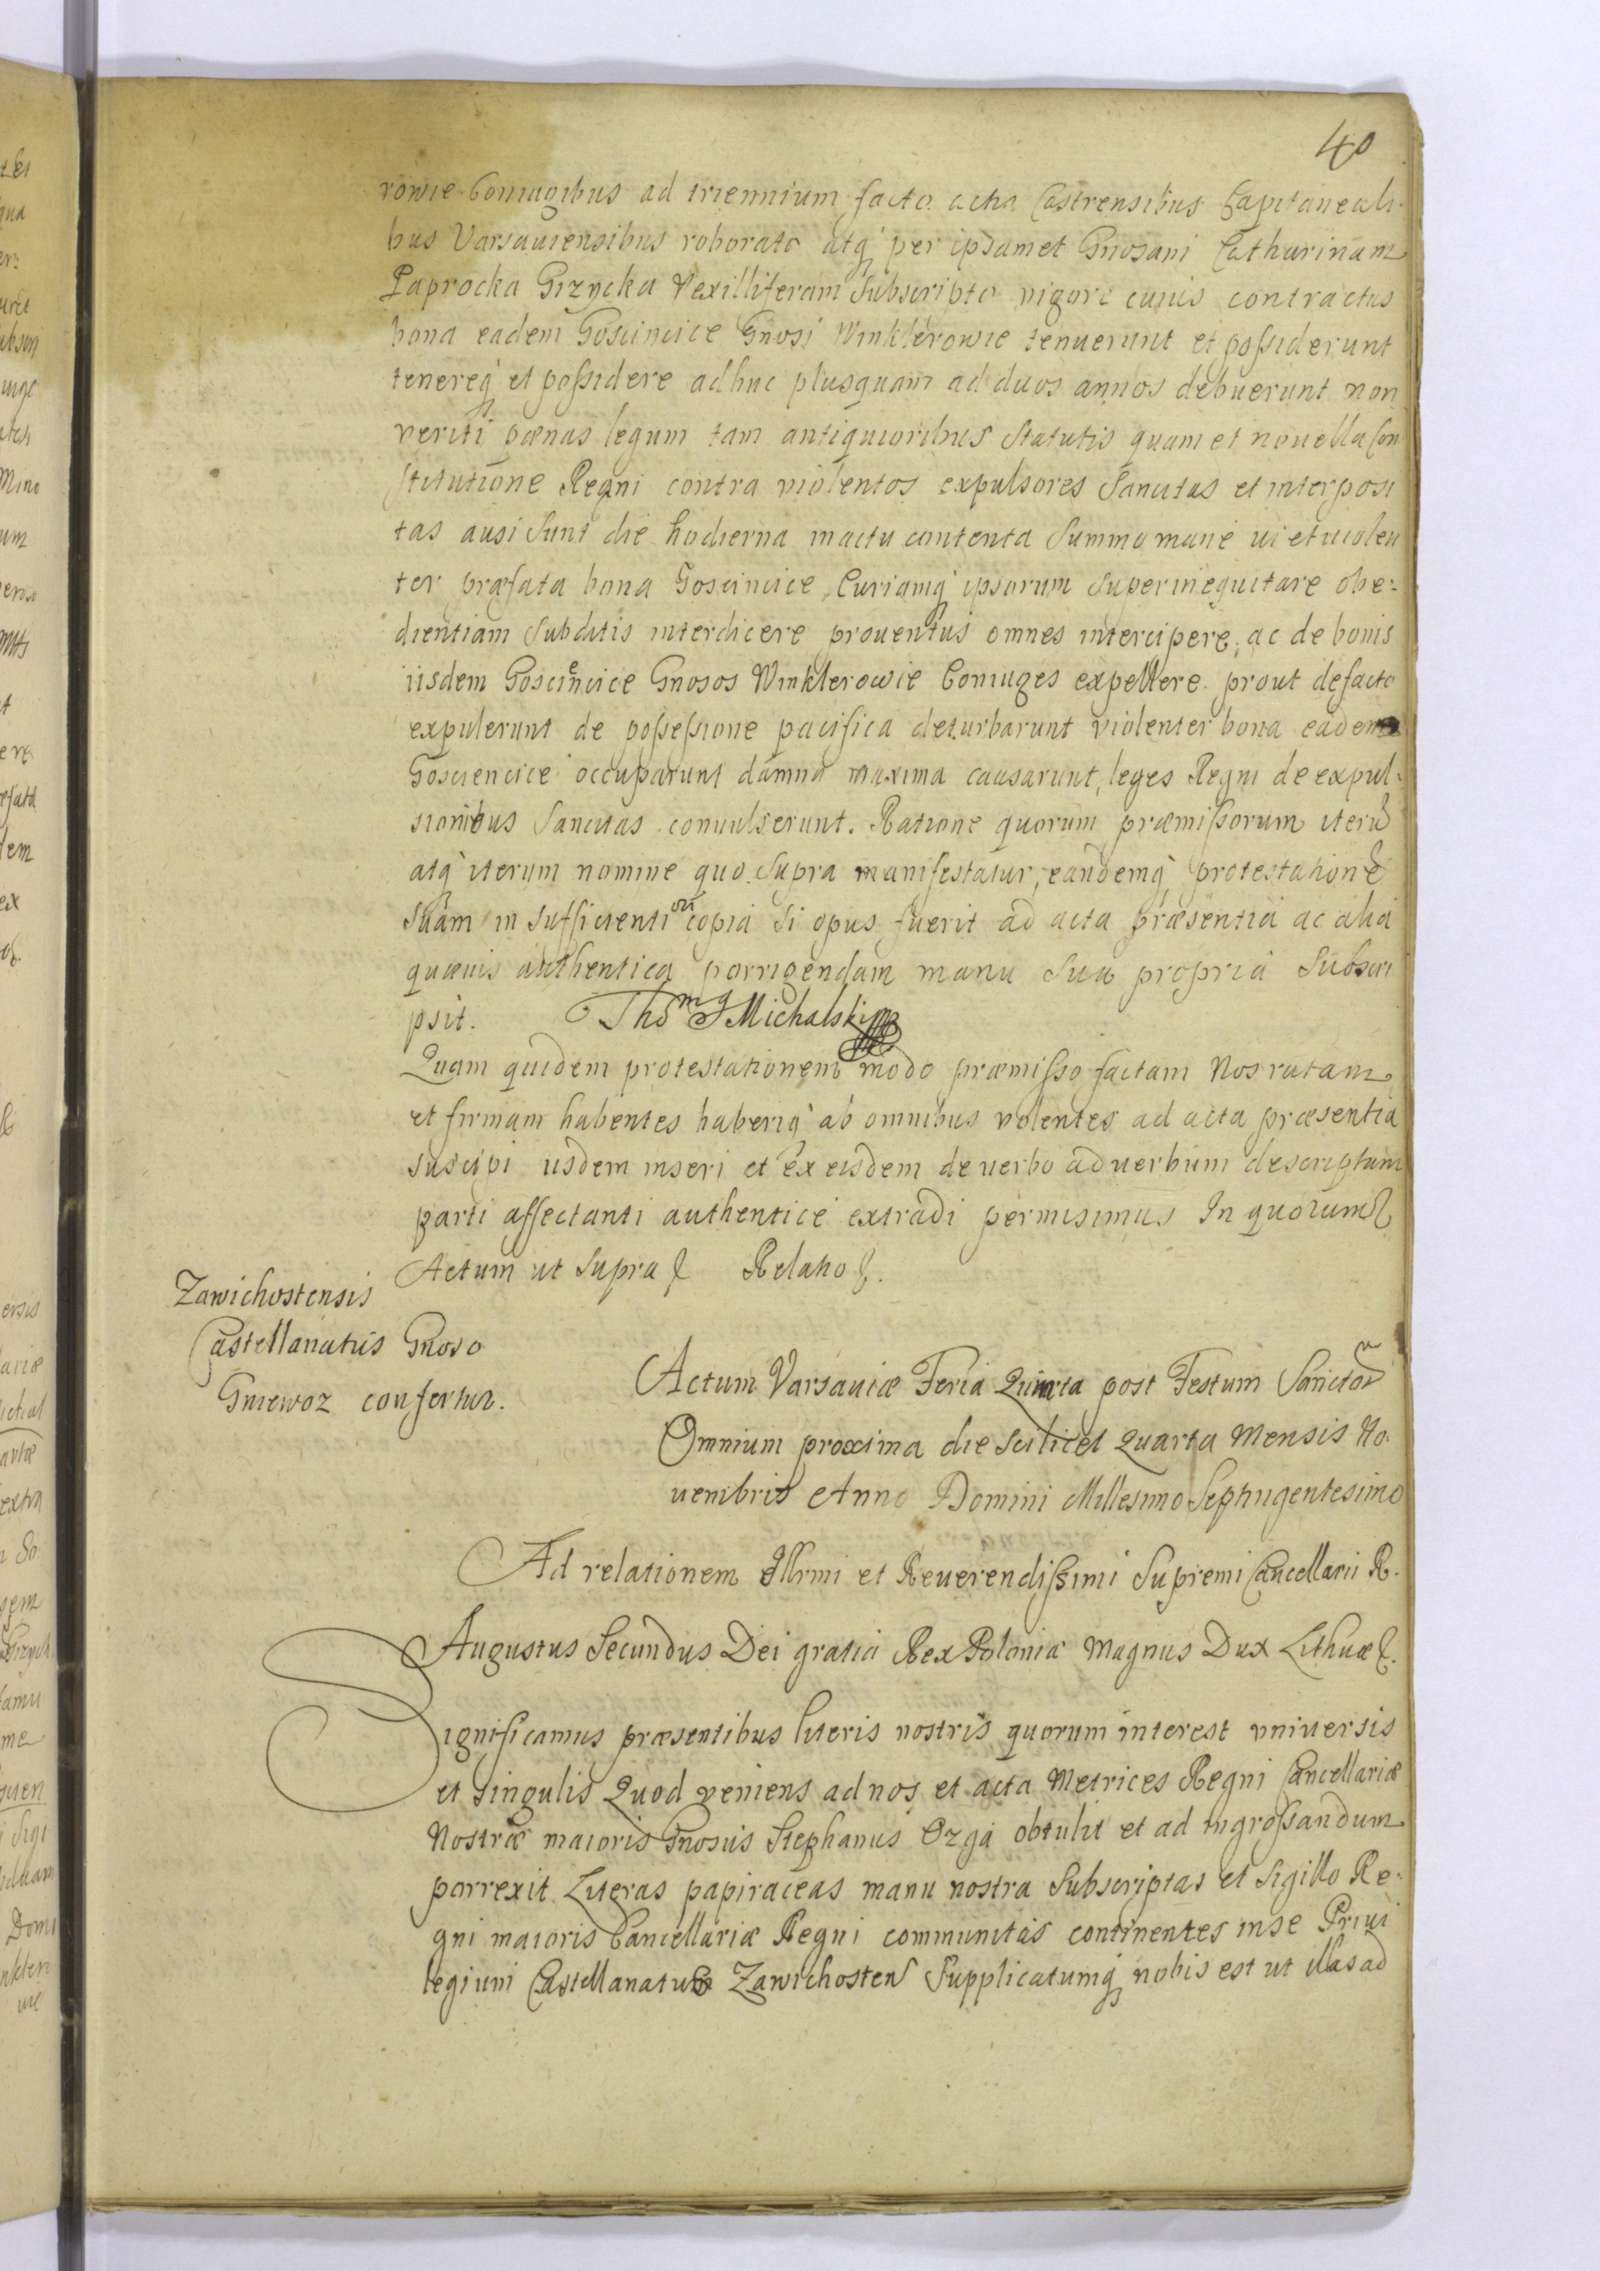 40
rowie Coniugibus ad triennium facto actis Castrensibus Capitaneali-
bus Varsauiensibus roborato atq̃ per ipsamet Gnosam Catharinam
Paprocka Grzycka Vexilliferam Subscripto vigore cuius contractus
bona eadem Goscincice Gnosi Winklerowie tenuerunt et possiderunt
tenereq̃ et possidere adhuc plusquam ad duos annos debuerunt non
veriti pænas legum tam antiquioribus Statutis quam et nouella Con
stitutione Regni contra violentos expulsores Sancitas et interposi
tas ausi Sunt die hodierna in actu contenta Summo mane ui et violen
ter præfata bona Goscincice Curiamq̃ ipsorum Superinequitare obe-
dientiam Subditis interdicere prouentus omnes intercipere, ac de bonis
iisdem Gosciencice Gnosos Winklerowie Coniuges expellere prout de facto
expulerunt de possessione pacifica deturbarunt violenter bona eadem
Gosciencice occuparunt damna maxima causarunt, leges Regni de expul-
sionibus Sancitas conuulserunt. Ratione quorum præmissorum iterũ
atq̃ iterum nomine quo Supra manifestatur, eandemq̃ protestationẽ
suam in sufficientiori copia si opus fuerit ad acta præsentia ac alia
quæuis authentica porrigendam manu Sua propria Subscri
psit. Thoms Michalski mp
Quam quidem protestationem modo præmisso factam Nos ratam
et firmam habentes haberiq̃ ab omnibus volentes ad acta præsentia
suscipi iisdem inseri et ex eisdem de uerbo ad uerbum descriptum
parti affectanti authentice extradi permisimus In quorum &
Actum ut Supra & Relatio &.
Zawichostensis
Castellanatus Gnoso
Gniewoz confertur.
Actum Varsauiæ Feria Quinta post Festum Sanctor
Omnium proxima die scilicet Quarta Mensis No-
uembris Anno Domini Millesimo Septingentesimo
Ad relationem Illrmi et Reuerendissimi Supremi Cancellarii R.
Augustus Secundus Dei gratia Rex Poloniæ Magnus Dux Lithuæ &.
Significamus præsentibus literis nostris quorum interest vniuersis
et singulis Quod veniens ad nos et acta Metrices Regni Cancellariæ
Nostræ maioris Gnosus Stephanus Ozga obtulit et ad ingrossandum
porrexit Literas papiraceas manu nostra Subscriptas et Sigillo Re-
gni maioris Cancellariæ Regni communitas continentes in se Priui
legium Castellanatus Zawichosten Supplicatumq̃ nobis est ut illas ad